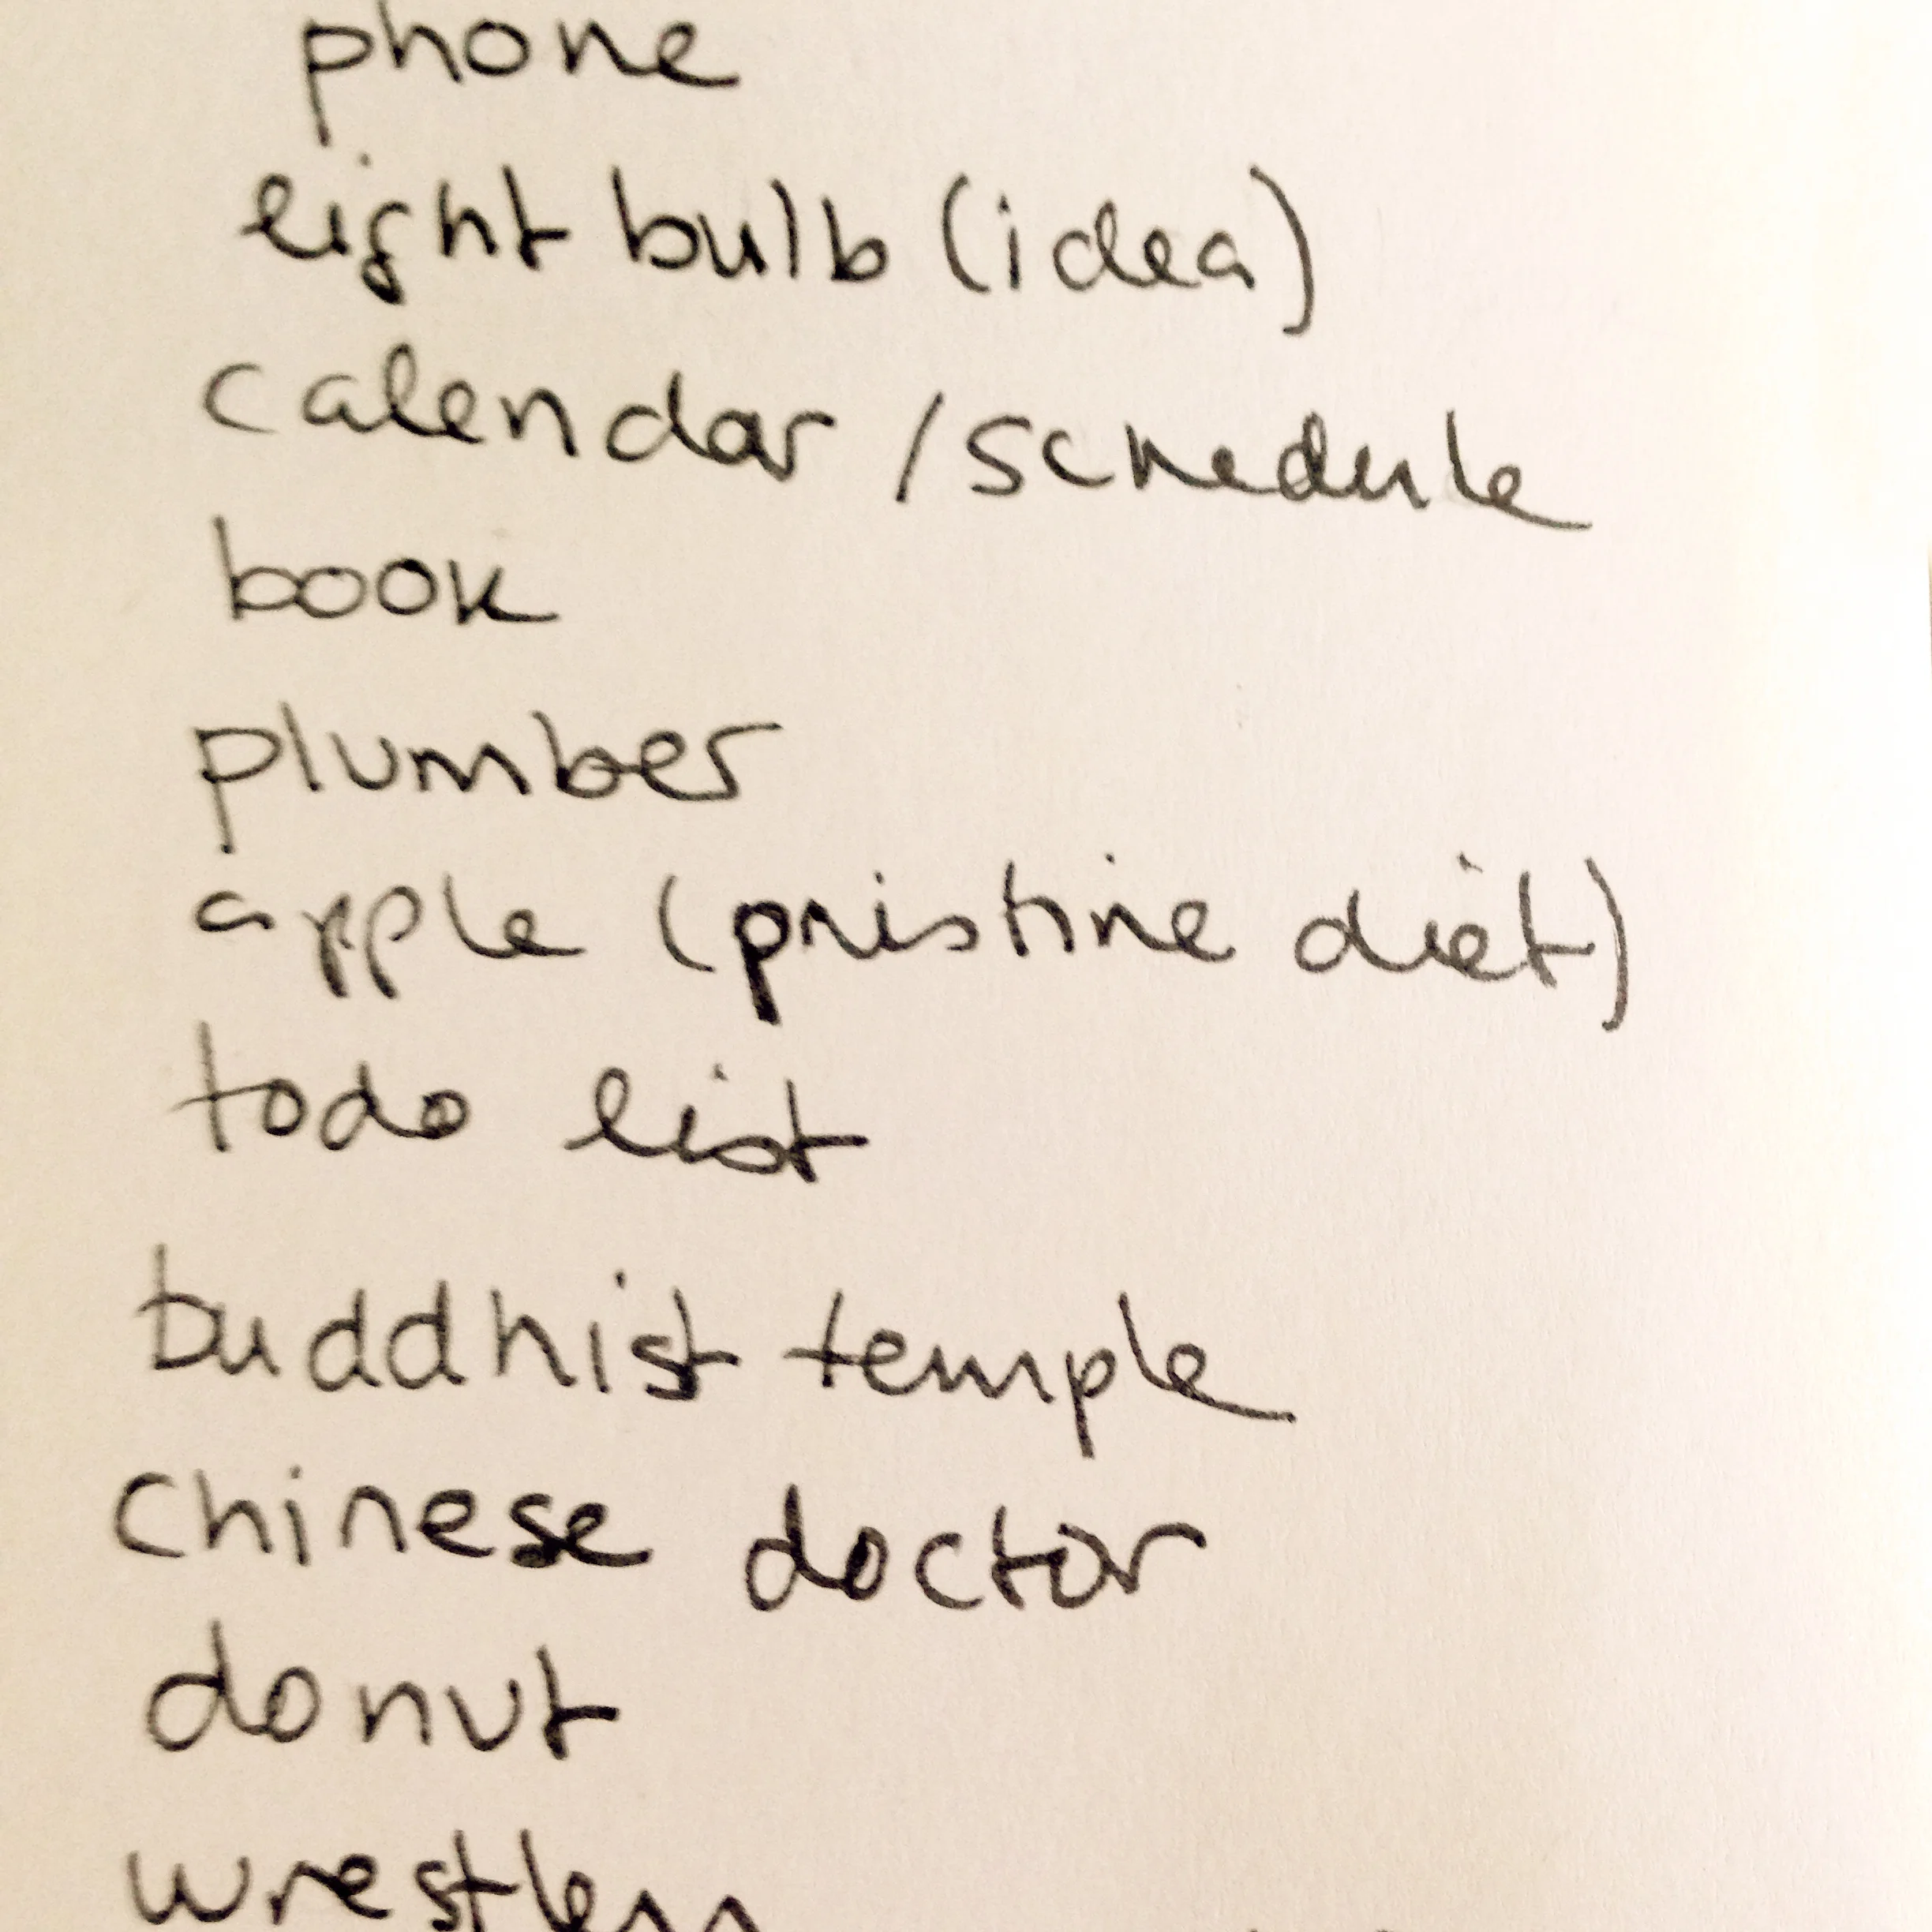 phone
light bulb (idea)
calendar / schedule
book
plumber
apple (pristine diet)
todo list
buddhist temple
chinese doctor
donut